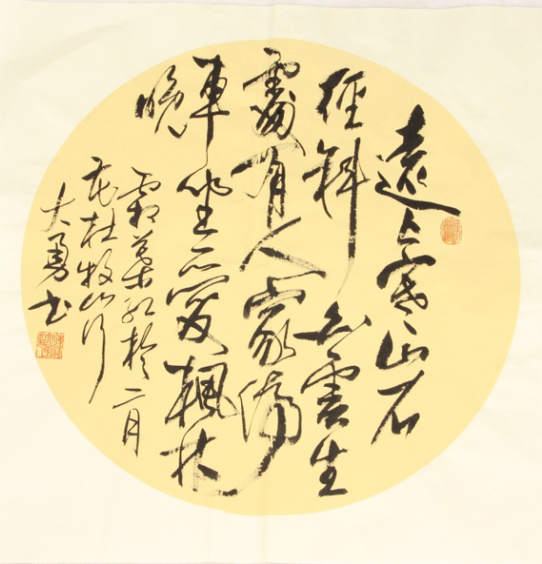 遠上寒山石
徑斜白雲生
處有人家停
車坐愛楓林
晚
霜葉紅於二月
花杜牧山行
大勇书